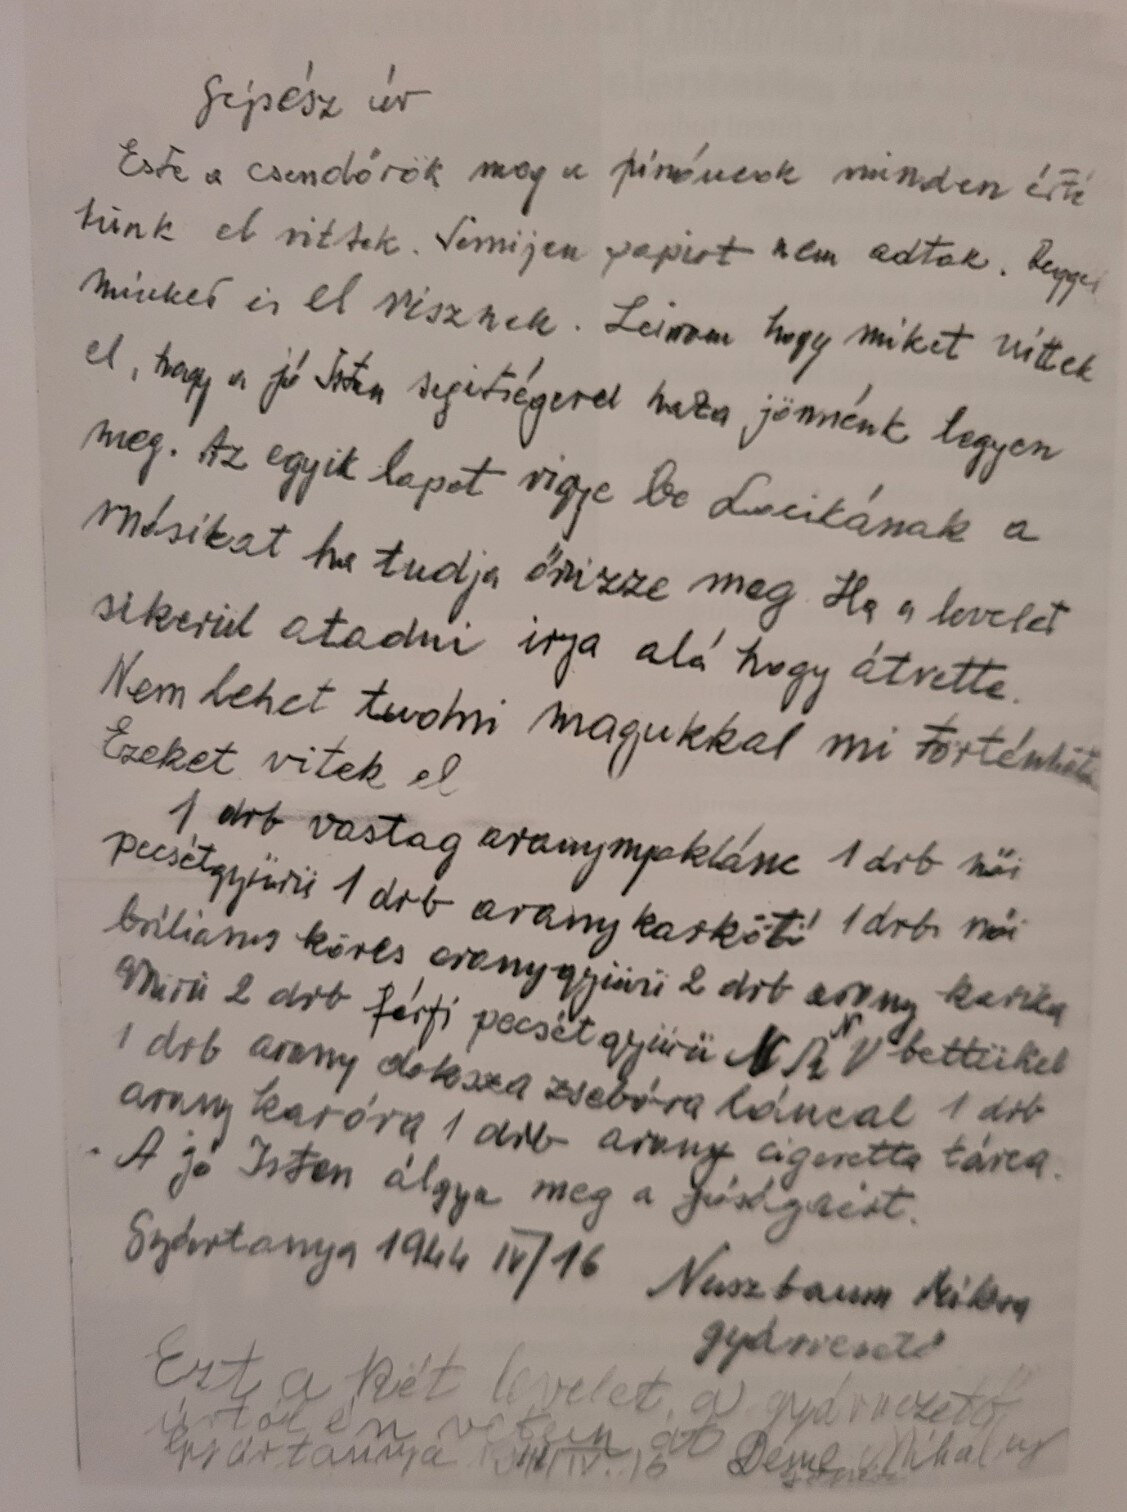 Gépész úr
Este a csendőrök meg a pénzünek minden érté
tünk el vittek. Semijen papirt nem adtak. Reggel
minket is el visznek. Leirom hogy miket vittek
el, hogy a jó Isten segitségevel haza jönnénk legyen
meg. Az egyik lapot vigye be Lacikának a
másikat ha tudja őrizze meg. Ha a levelet
sikerül atadni irja alá hogy átvette.
Nem lehet tudni magukkal mi történhet
Ezeket vitek el
1 drb vastag aranynyaklánc 1 drb női
pecsétgyürü 1 drb arany karkötő 1 drb női
briliáns köves aranygyürü 2 drb arany karika
gyürü 2 drb férfi pecsétgyürü N V bettükel
1 drb arany doksza zsebóra láncal 1 drb
arany karóra 1 drb arany cigeretta tárca.
A jó Isten álgya meg a jóságáért.
Gyártanya 1944 IV/16
Nuszbaum
gyárvezető
Ezt a két levelet a gyárvezető
úrtól én vetem át
Gyártanya IV. 16 Mihaly